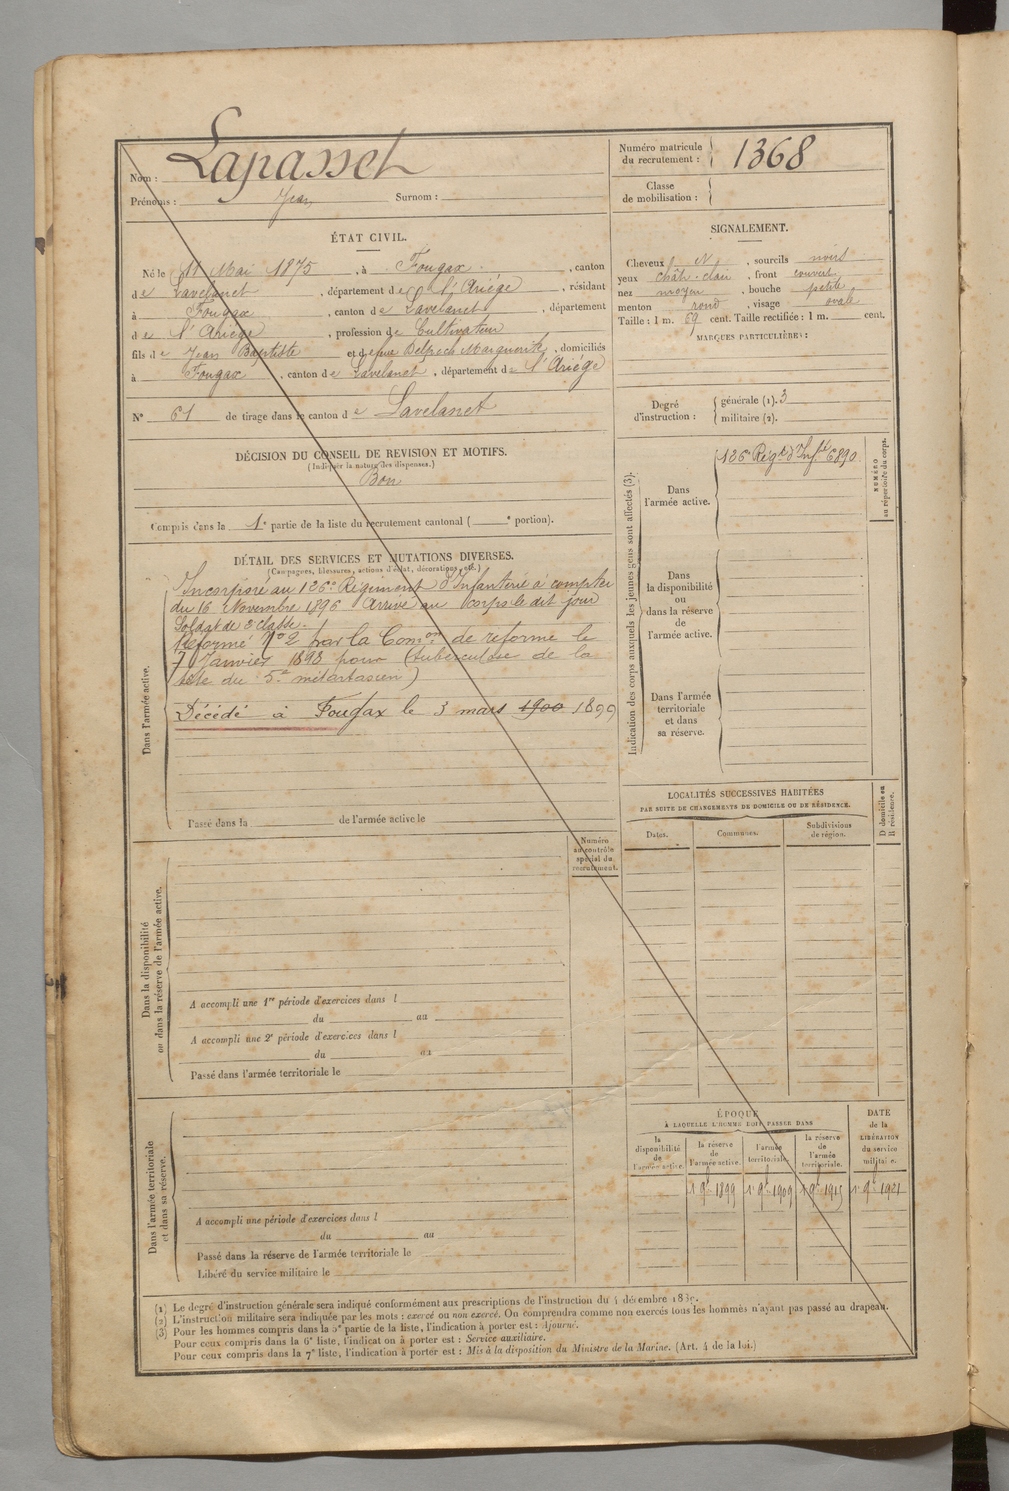 Nom : Lapasset
Prénoms : Jean Surnom :
Numéro matricule du recrutement : 1368
Classe de mobilisation :
ÉTAT CIVIL.
Né le 11 Mai 1875, à Fougax, canton
de Lavelanet, département de l'Ariége, résidant
à Fougax, canton de Lavelanet, département
de l'Ariége, profession de Cultivateur
fils de Jean Baptiste et de feue Delpech Marguerite, domiciliés
à Fougax, canton de Lavelanet, département de l'Ariége
N° 61 de tirage dans le canton de Lavelanet
SIGNALEMENT.
Cheveux N, sourcils noirs
yeux chât. clair, front couvert
nez moyen, bouche petite
menton rond, visage ovale
Taille : 1 m. 69 cent. Taille rectifiée : 1 m. cent.
MARQUES PARTICULIÈRES :
Degré d'instruction : générale (1). 3
militaire (2).
DÉCISION DU CONSEIL DE REVISION ET MOTIFS.
(Indiquer la nature des dispenses.)
Bon
Compris dans la 1e partie de la liste du recrutement cantonal ( e portion).
DÉTAIL DES SERVICES ET MUTATIONS DIVERSES.
(Campagnes, blessures, actions d'éclat, décorations, etc.)
Dans l'armée active.
Incorporé au 126e Régiment d'Infanterie à compter
du 16 Novembre 1896 Arrivé au corps le dit jour
Soldat de 2e classe.
Réformé N° 2 par la Comon de réforme le
7 Janvier 1898 pour (tuberculose de la
tête du 5e métartasien)
Décédé à Fougax le 3 mars 1900 1899
Passé dans la de l'armée active le
Numéro au contrôle spécial du recrutement.
Dans la disponibilité ou dans la réserve de l'armée active.
A accompli une 1re période d'exercices dans l
du au
A accompli une 2e période d'exercices dans l
du au
Passé dans l'armée territoriale le
Dans l'armée territoriale et dans sa réserve.
A accompli une période d'exercices dans l
du au
Passé dans la réserve de l'armée territoriale le
Libéré du service militaire le
Indication des corps auxquels les jeunes gens sont affectés (3).
Dans l'armée active.
126e Régt d'Inftie 6890
NUMÉRO au répertoire du corps.
Dans la disponibilité ou dans la réserve de l'armée active.
Dans l'armée territoriale et dans sa réserve.
LOCALITÉS SUCCESSIVES HABITÉES
PAR SUITE DE CHANGEMENTS DE DOMICILE OU DE RÉSIDENCE.
Dates. Communes. Subdivisions de région. D domicile ou R résidence.
ÉPOQUE
À LAQUELLE L'HOMME DOIT PASSER DANS
la disponibilité de l'armée active.
la réserve de l'armée active.
l'armée territoriale.
la réserve de l'armée territoriale.
DATE de la LIBÉRATION du service militaire.
1r 9bre 1899 1r 9bre 1909 1r 9bre 1915 1r 9bre 1921
(1) Le degré d'instruction générale sera indiqué conformément aux prescriptions de l'instruction du 4 décembre 1889.
(2) L'instruction militaire sera indiquée par les mots : exercé ou non exercé. On comprendra comme non exercés tous les hommes n'ayant pas passé au drapeau.
(3) Pour les hommes compris dans la 5e partie de la liste, l'indication à porter est : Ajourné.
Pour ceux compris dans la 6e liste, l'indication à porter est : Service auxiliaire.
Pour ceux compris dans la 7e liste, l'indication à porter est : Mis à la disposition du Ministre de la Marine. (Art. 4 de la loi.)